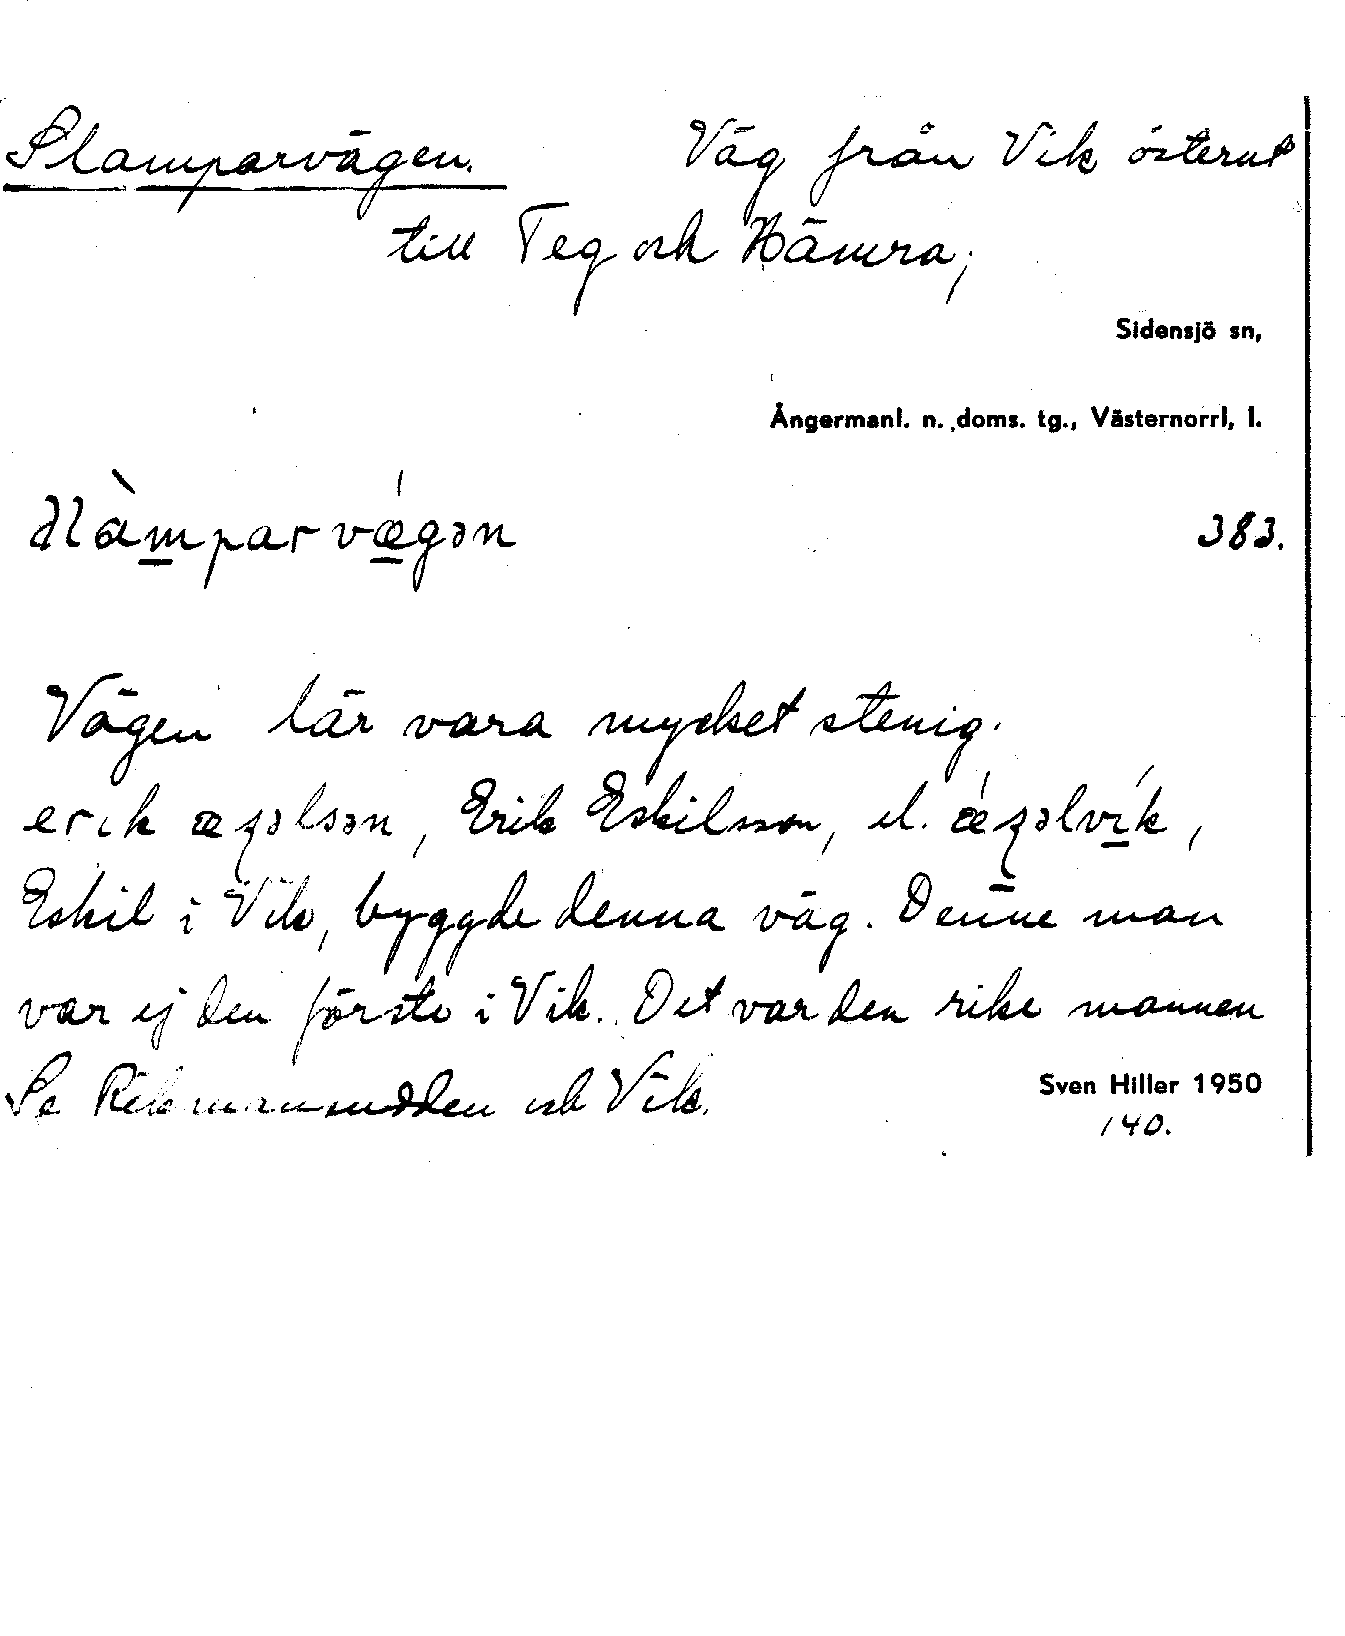 Slamparvägen. Väg från Vik österut
till Teg och Hämra,
Sidensjö sn,
Ångermanl. n. doms. tg., Västernorrl, l.
383.
Vägen lär vara mycket stenig.
Erik Eskilsson, el.
Eskil i Vik, byggde denna väg. Denne man
var ej den förste i Vik. Det var den rike mannen
Se Rikmansudden och Vik.
Sven Hiller 1950
140.